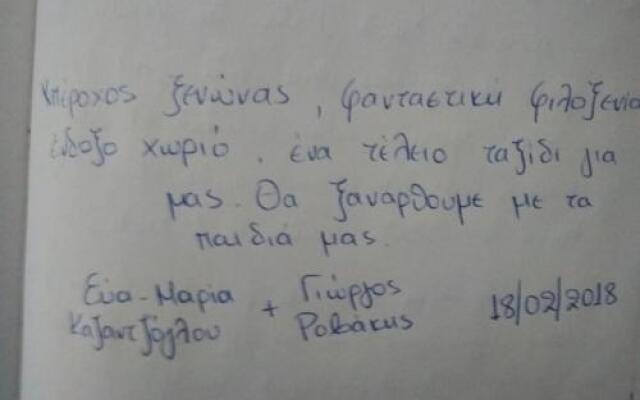 Υπέροχος ξενώνας, φανταστική φιλοξενία
ένδοξο χωριό, ένα τέλειο ταξίδι για
μας. Θα ξαναρθουμε με τα
παιδιά μας.
Εύα-Μαρία + Γιώργος 18/02/2018
Καζαντζόγλου Ροβάκης